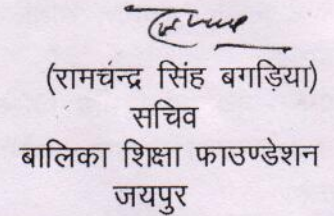 (रामचन्द्र सिंह बगड़िया)
सचिव
बालिका शिक्षा फाउण्डेशन
जयपुर